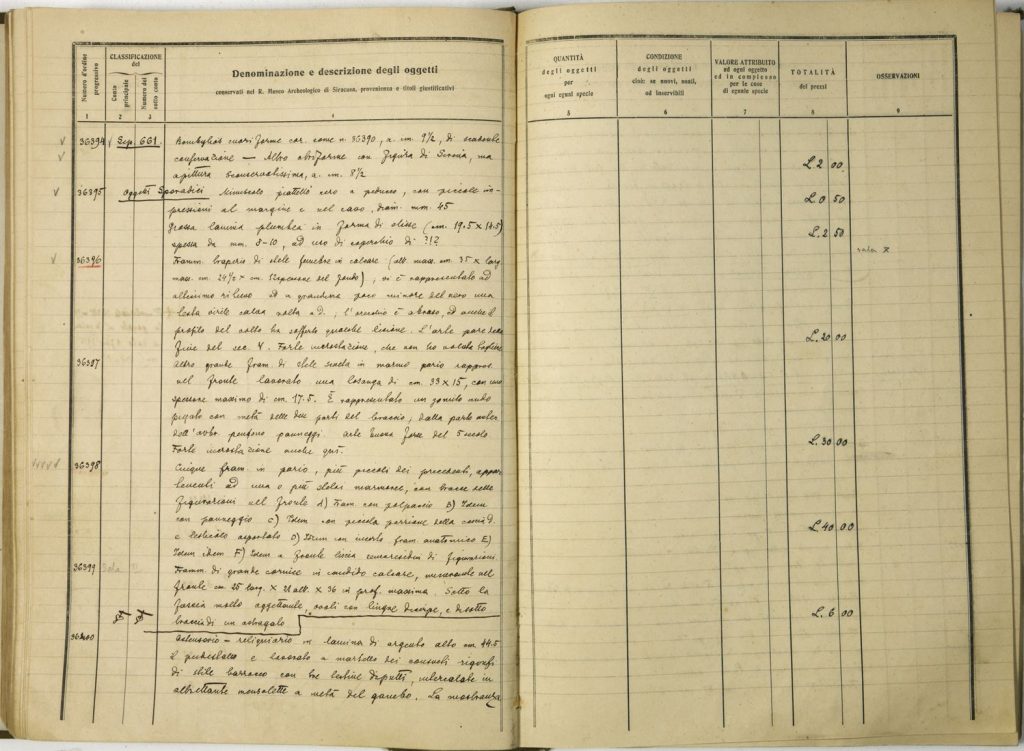 Numero d'ordine progressivo
CLASSIFICAZIONE del
Conto principale
Numero del sotto conto
Denominazione e descrizione degli oggetti
conservati nel R. Museo Archeologico di Siracusa, provenienza e titoli giustificativi
1 2 3 4
QUANTITÀ degli oggetti per ogni egual specie
CONDIZIONE degli oggetti cioè: se nuovi, usati, od inservibili
VALORE ATTRIBUITO ad ogni oggetto ed in complesso per le cose di eguale specie
TOTALITÀ dei prezzi
OSSERVAZIONI
5 6 7 8 9
36394 Sep. 661. Bombylios cuoriforme cor. come n. 36390, a. cm. 9½, di
- Altro con figura di Sirena, ma
a. cm. 8½ L. 2 00
36395 Oggetti Sporadici Minuscolo piattello nero a peduccio, con piccole im-
pressioni al margine e nel cavo, diam. mm. 45 L. 0 50
Grossa lamina plumbea in forma di (cm. 19.5 x 14.5)
spessa da mm. 8-10, ad uso di coperchio di ?!? L. 2 50
36396 Framm. di stele funebre in calcare (alt. mass. cm. 35 x larg
mass. cm. 24½ x cm. del fondo), vi è rappresentato ad
altissimo rilievo ed a grandezza poco minore del vero una
testa virile calva volta a d., l'orecchio è abraso, ed anche il
profilo del volto ha sofferto qualche lesione. L'arte pare della
fine del sec. V. Forte incrostazione, che non ho voluto togliere L. 20.00
36397 Altro grande fram. di stele in marmo pario rappres.
nel fronte lavorato una losanga di cm. 33 x 15, con uno
spessore massimo di cm. 17.5. È rappresentato un nudo
piegato con metà delle due parti del braccio, dalla parte
pendono panneggi. Arte buona forse del 5 secolo
Forte incrostazione anche qui. L. 30.00
36398 Cinque fram. in pario, più piccoli dei precedenti, appar-
tenenti ad una o più stelai marmoree, con tracce delle
figurazioni nel fronte A) Fram. con polpaccio B) Idem
con panneggio C) Idem con piccola porzione della
e asportato D) Idem con incerto fram. anatomico E)
Idem idem F) Idem a fronte liscia di figurazioni L. 40.00
36399 Framm. di grande cornice in candido calcare, misurante nel
fronte cm. 25 larg. x 21 alt. x 36 in prof. massima. Sotto la
fascia molto aggettante, ovoli con lingue, e di sotto
traccia di un astragalo L. 6.00
36400 Ostensorio - reliquiario in lamina di argento alto cm. 44.5
il piedistallo è lavorato a martello dei consueti rigonfi
di stile barocco con tre testine di putti, intercalate in
altrettante mensolette a metà del gambo. La mostranza